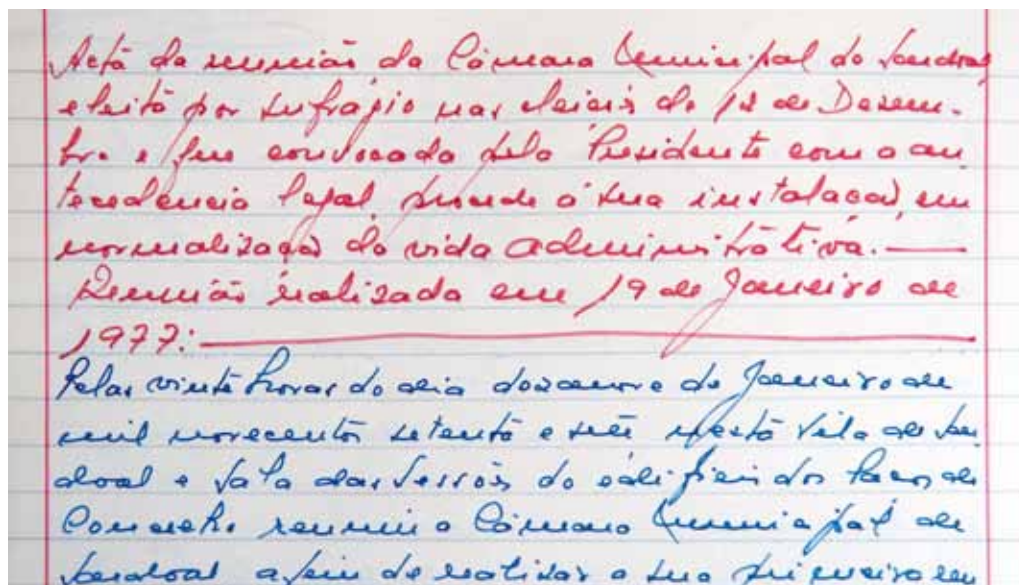 Acta da reunião da Câmara Municipal do Sardoal,
eleita por sufrágio nas eleições de 12 de Dezem-
bro e que convocada pelo Presidente com a an
tecedencia legal, procede á sua instalação, em
normalização da vida administrativa. —
Reunião realizada em 19 de Janeiro de
1977: —
Pelas vinte horas do dia dozanove de Janeiro de
mil novecentos setenta e sete nesta Vila de Sar
doal e Sala das Sessões do edificio dos Paços do
Concelho reuniu a Câmara Municipal de
Sardoal afim de realizar a sua primeira reu